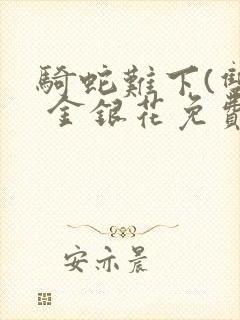 騎蛇難下(雙
金銀花免費
安亦晨